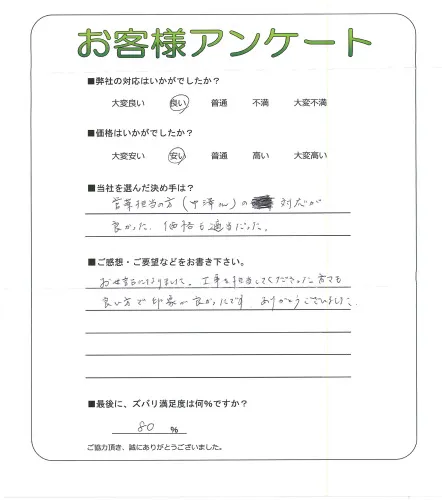 お客様アンケート
■弊社の対応はいかがでしたか？
大変良い 良い 普通 不満 大変不満
■価格はいかがでしたか？
大変安い 安い 普通 高い 大変高い
■当社を選んだ決め手は？
営業担当の方（中澤さん）の 対応が
良かった、価格も適当だった。
■ご感想・ご要望などをお書き下さい。
お世話になりました。工事を担当してくださった方でも
良い方で印象が良かったです。ありがとうございました。
■最後に、ズバリ満足度は何%ですか？
80 %
ご協力頂き、誠にありがとうございました。